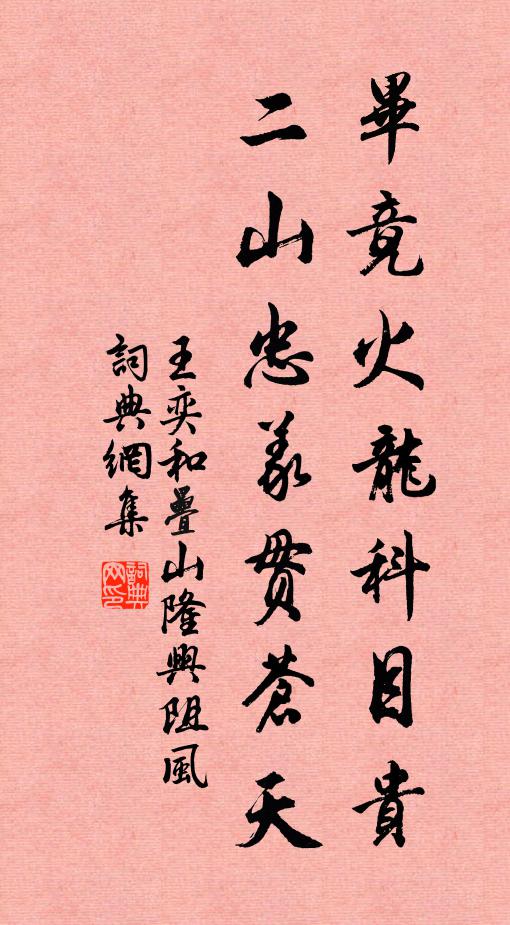 畢竟火龍科目貴
二山忠義貫蒼天
王奕和疊山隆興阻風
詞典網集
詞典網印